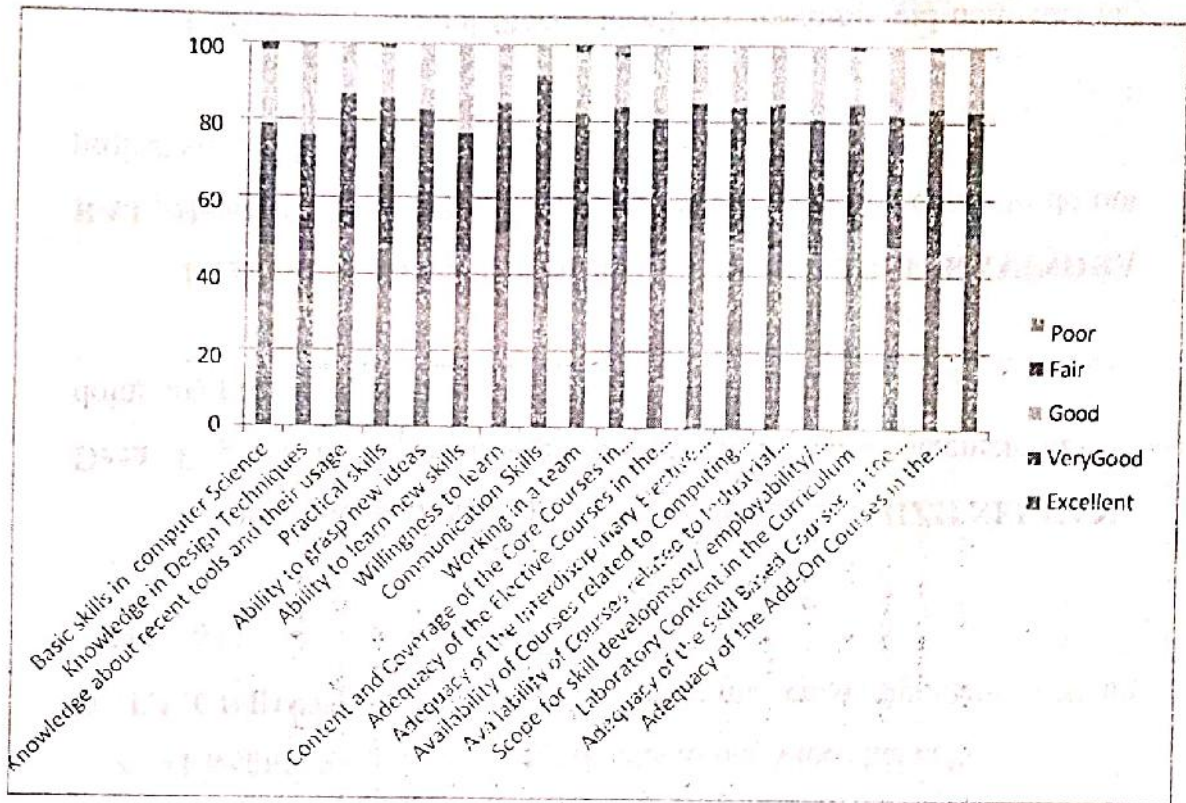 100
80
60
40
20
0
Poor
Fair
Good
VeryGood
Excellent
Basic Skills in computer Science
Knowledge in Design Techniques
Knowledge about recent tools and their usage
Practical skills
Ability to grasp new ideas
Ability to learn new skills
Willingness to learn
Communication Skills
Working in a team
Content and Coverage of the Core Courses in...
Adequacy of the Elective Courses in the...
Adequacy of the Interdisciplinary Elective...
Availability of Courses related to Computing...
Availability of Courses related to Industrial...
Scope for skill development/ employability/...
Laboratory Content in the Curriculum
Adequacy of the Skill Based Courses in the...
Adequacy of the Add-On Courses in the...